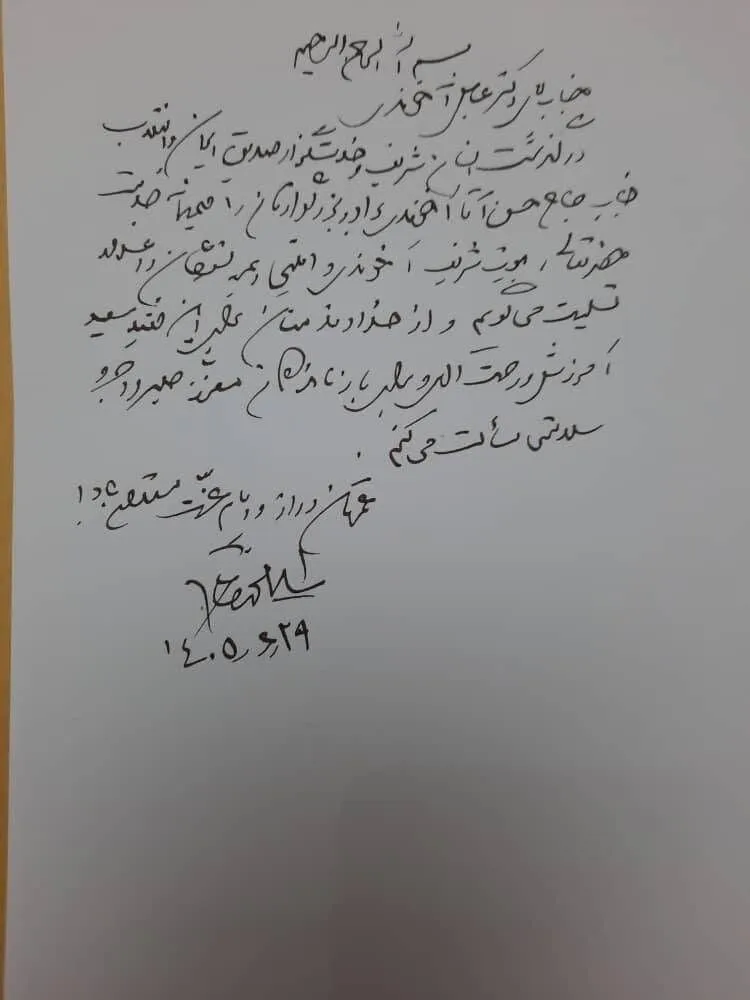 بسم الله الرحمن الرحیم
جناب آقای دکتر عباس آخوندی
درگذشت انسان شریف و خدمتگزار صدیق ایران و انقلاب
جناب حاج حسن آقا آخوندی برادر بزرگوارتان را صمیمانه خدمت
حضرتعالی، بیت شریف آخوندی و همه بستگان
تسلیت می‌گویم و از خداوند منان برای آن فقید سعید
آمرزش و رحمت الهی و برای بازماندگان معزز صبر و اجر و
سلامتی مسألت می‌کنم.
عمرتان دراز و ایام عزت مستدام باد!
۱۴۰۵٫۶٫۲۹